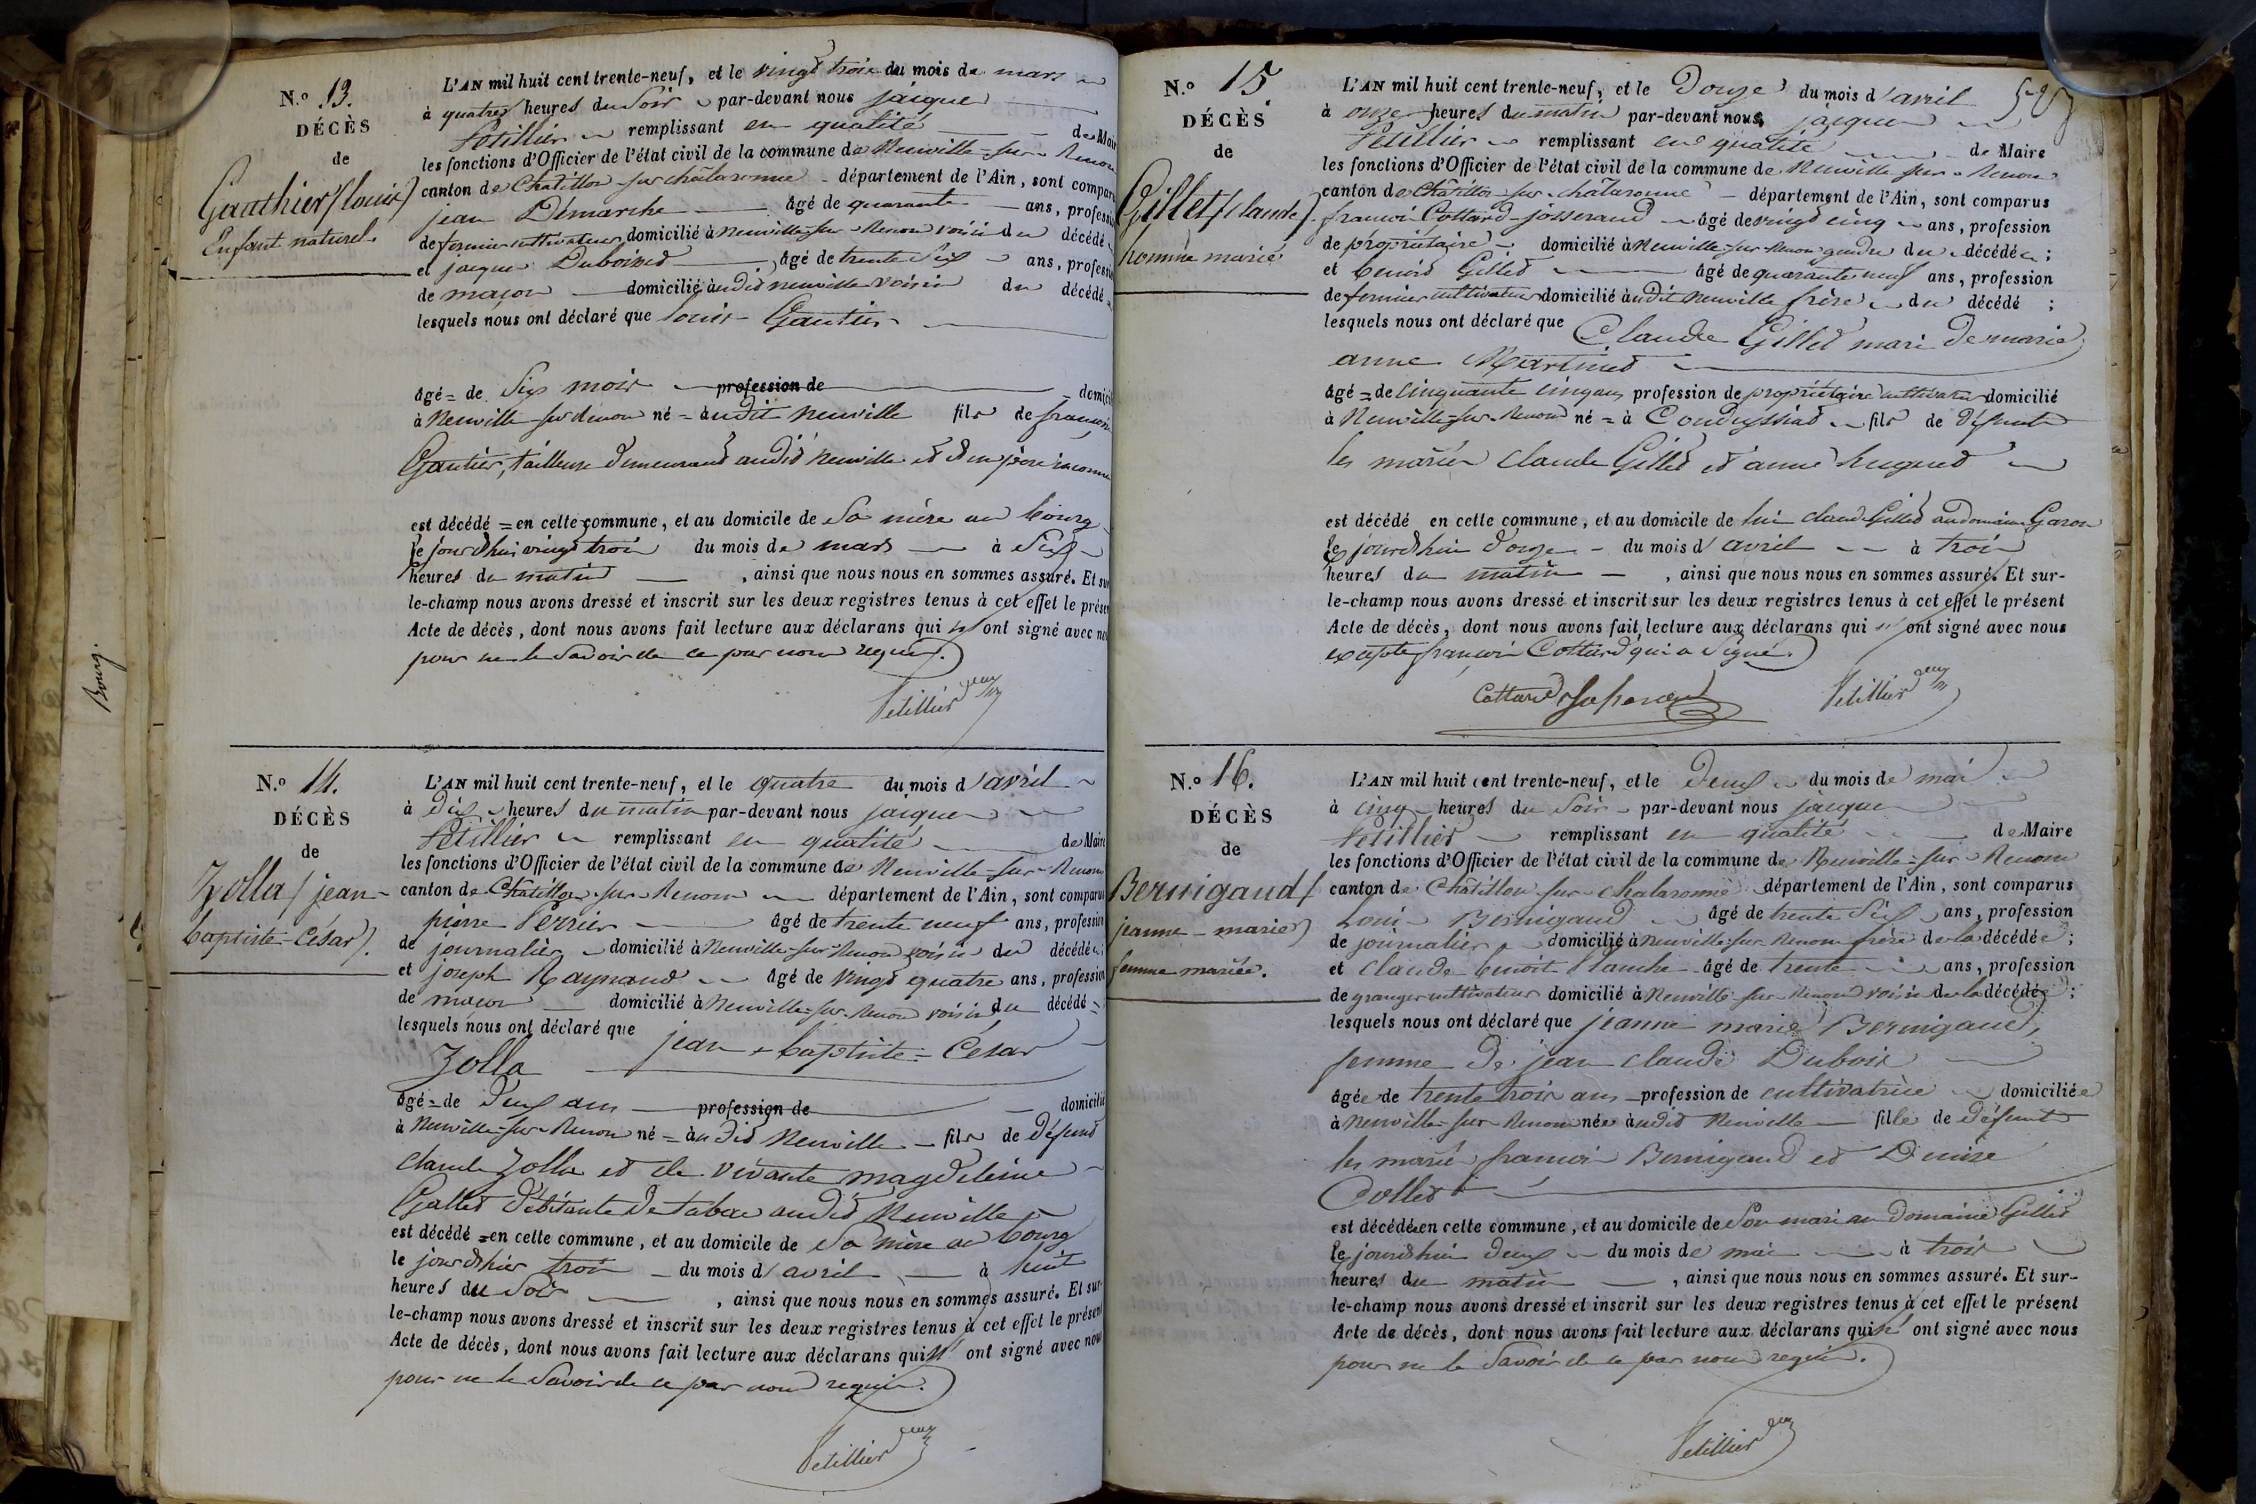 N.° 13.
DÉCÈS
de
Gauthier (louis)
Enfant naturel.
L'AN mil huit cent trente-neuf, et le vingt trois du mois de mars
à quatre heures du Soir par-devant nous jacques
Petillier remplissant en qualité de Maire
les fonctions d'Officier de l'état civil de la commune de Neuville-sur-Renon
canton de Chatillon-sur-chalaronne département de l'Ain, sont comparus
jean Démarche âgé de quarante ans, profession
de fermier cultivateur domicilié à Neuville-sur-Renon voisin du décédé
et jacques Duboined âgé de trente Six ans, profession
de maçon domicilié audit neuville voisin du décédé
lesquels nous ont déclaré que louis Gautier
âgé = de Six mois profession de domicilié
à Neuville sur Renon né = audit Neuville fils de françoise
Gautier, tailleuse demeurant audit Neuville et d'un père inconnu
est décédé = en cette commune, et au domicile de Sa mère au bourg
le jourd'hui vingt trois du mois de mars à Six
heures du matin , ainsi que nous nous en sommes assuré. Et sur-
le-champ nous avons dressé et inscrit sur les deux registres tenus à cet effet le présent
Acte de décès, dont nous avons fait lecture aux déclarans qui n'ont signé avec nous
pour ne le Savoir de ce par nous requis.
Petillier
N.° 14.
DÉCÈS
de
Zolla (jean-
baptiste-César).
L'AN mil huit cent trente-neuf, et le quatre du mois d'avril
à dix heures du matin par-devant nous jacques
Petillier remplissant en qualité de Maire
les fonctions d'Officier de l'état civil de la commune de Neuville-sur-Renon
canton de Chatillon-sur-Renon département de l'Ain, sont comparus
pierre Perrier âgé de trente neuf ans, profession
de journalier domicilié à Neuville-sur-Renon voisin du décédé
et joseph Raynaud âgé de vingt quatre ans, profession
de maçon domicilié à Neuville-sur-Renon voisin du décédé
lesquels nous ont déclaré que jean baptiste = César
Zolla
âgé = de deux ans profession de domicilié
à Neuville-sur-Renon né = audit Neuville fils de défunt
claude Zolla et de vivante magdeleine
Gallet débitante de tabac audit Neuville
est décédé = en cette commune, et au domicile de Sa mère au bourg
le jour d'hier trois du mois d'avril à huit
heures du Soir , ainsi que nous nous en sommes assuré. Et sur-
le-champ nous avons dressé et inscrit sur les deux registres tenus à cet effet le présent
Acte de décès, dont nous avons fait lecture aux déclarans qui n'ont signé avec nous
pour ne le Savoir de ce par nous requis.
Petillier
Bourg.
N.° 15
DÉCÈS
de
Gillet (Claude)
homme marié
L'AN mil huit cent trente-neuf, et le Douze du mois d'avril
à onze heures du matin par-devant nous jacques
Petillier remplissant en qualité de Maire
les fonctions d'Officier de l'état civil de la commune de Neuville sur-Renon
canton de Chatillon-sur-chalaronne département de l'Ain, sont comparus
françois Cottard-josserand âgé de vingt cinq ans, profession
de propriétaire domicilié à Neuville-sur-Renon gendre du décédé ;
et benoit Gillet âgé de quarante neuf ans, profession
de fermier cultivateur domicilié audit Neuville frère du décédé ;
lesquels nous ont déclaré que Claude Gillet mari de marie
anne Martinet
âgé = de Cinquante cinq ans profession de propriétaire cultivateur domicilié
à Neuville-sur-Renon né = à Condeyssiat fils de défunts
les mariés claude Gillet et anne huguet
est décédé en cette commune, et au domicile de lui claude Gillet au domaine Garon
le jourd'hui douze du mois d'avril à trois
heures du matin , ainsi que nous nous en sommes assuré. Et sur-
le-champ nous avons dressé et inscrit sur les deux registres tenus à cet effet le présent
Acte de décès, dont nous avons fait lecture aux déclarans qui n'ont signé avec nous
excepté françois Cottard qui a Signé.
Cottard Josserand Petillier
N.° 16.
DÉCÈS
de
Bernigaud (
jeanne-marie)
femme mariée.
L'AN mil huit cent trente-neuf, et le Deux du mois de mai
à cinq heures du Soir par-devant nous jacques
Petillier remplissant en qualité de Maire
les fonctions d'Officier de l'état civil de la commune de Neuville-sur-Renon
canton de Châtillon sur-chalaronne département de l'Ain, sont comparus
Louis Bernigaud âgé de trente Six ans, profession
de journalier domicilié à Neuville-sur-Renon frère de la décédée ;
et claude benoit Planche âgé de trente ans, profession
de granger cultivateur domicilié à Neuville-sur-Renon voisin de la décédée ;
lesquels nous ont déclaré que jeanne marie Bernigaud,
femme de jean claude Dubois
âgée de trente trois ans profession de cultivatrice domiciliée
à Neuville-sur-Renon née audit Neuville fille de défunts
les mariés françois Bernigaud et Denise
Collet
est décédée en cette commune, et au domicile de Son mari au Domaine Gillet
le jourd'hui deux du mois de mai à trois
heures du matin , ainsi que nous nous en sommes assuré. Et sur-
le-champ nous avons dressé et inscrit sur les deux registres tenus à cet effet le présent
Acte de décès, dont nous avons fait lecture aux déclarans qui n'ont signé avec nous
pour ne le Savoir de ce par nous requis.
Petillier